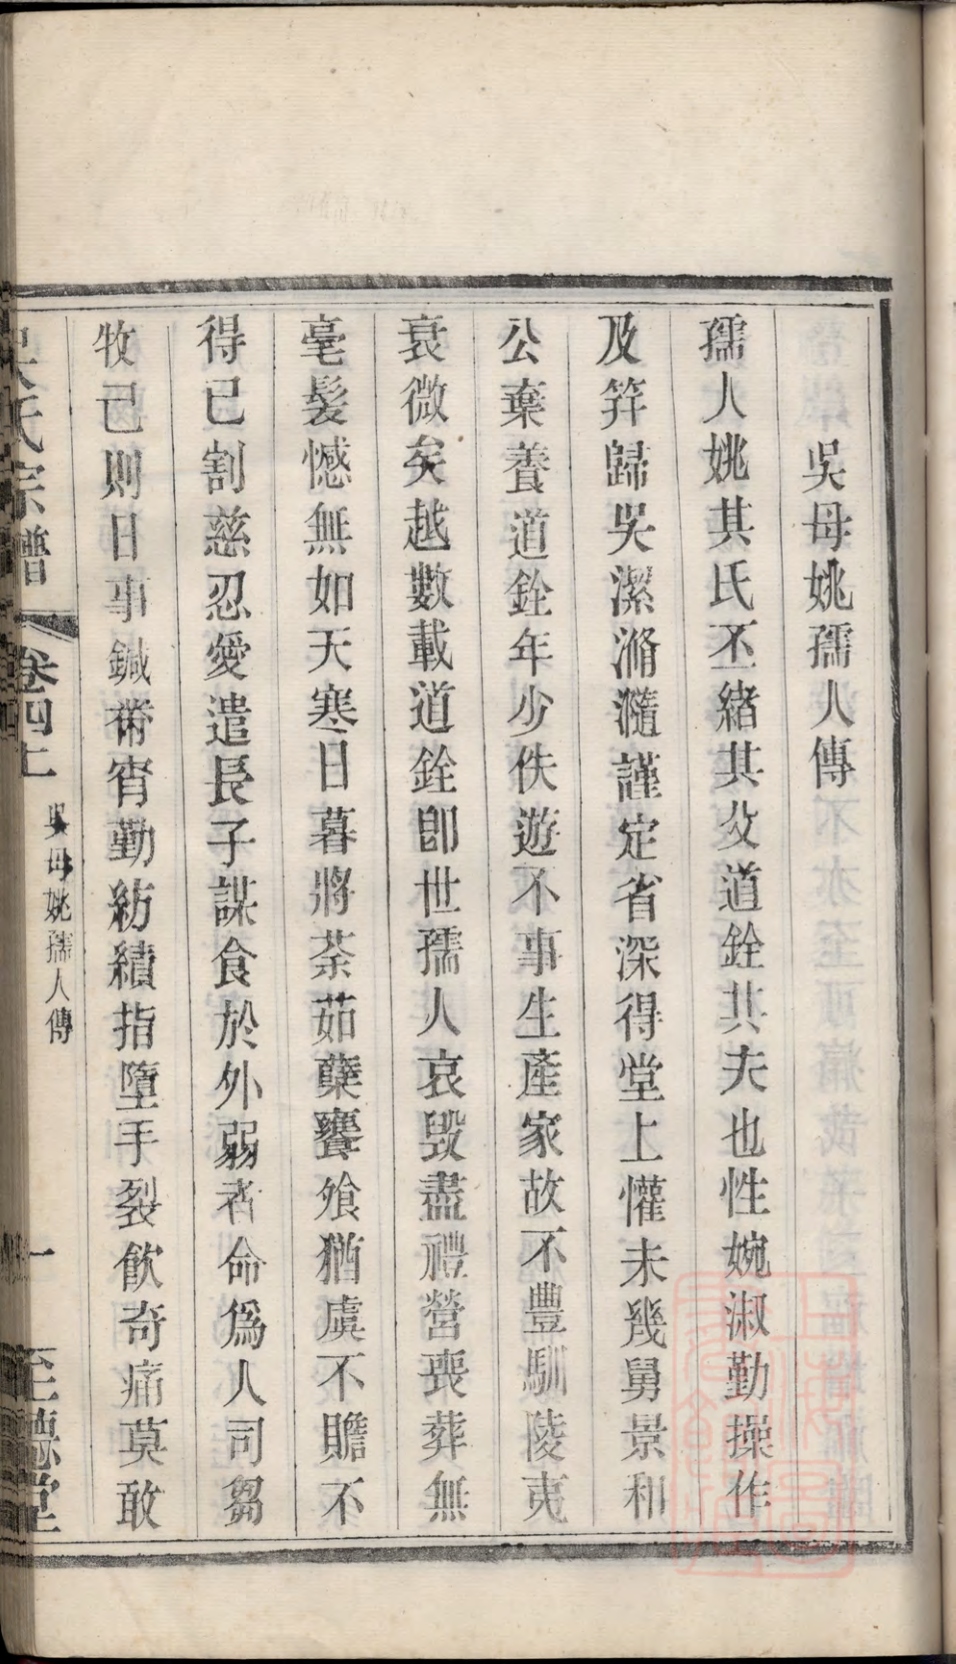 吳母姚孺人傳
孺人姚其氏丕緒其父道銓其夫也性婉淑勤操作
及笄歸吳潔滫瀡謹定省深得堂上懽未幾舅景和
公棄養道銓年少佚遊不事生產家故不豐馴陵夷
衰微矣越數載道銓卽世孺人哀毀盡禮營喪葬無
毫髮憾無如天寒日暮將荼茹蘗饔飧猶虞不贍不
得已割慈忍愛遣長子謀食於外弱者命爲人司芻
牧己則日事鍼黹宵勤紡績指墮手裂飮奇痛莫敢
吳氏宗譜
卷四上
吳母姚孺人傳
一
至德堂